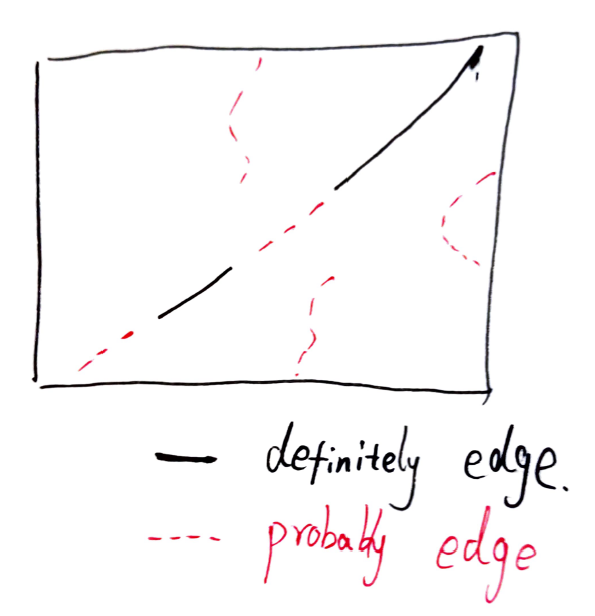 definitely edge.
probably edge